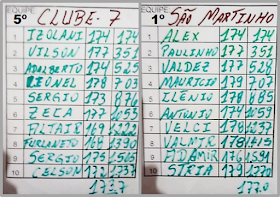 EQUIPE
5º CLUBE-7
1 IZOLANI 174 174
2 VILSON 177 351
3 ADALBERTO 174 525
4 LEONEL 178 703
5 SERGIO 173 876
6 ZECA 177 1053
7 ALTAIR 169 1222
8 FURLANETO 168 1390
9 SERGIO 175 1565
10 CELSON 172 1737
1737
EQUIPE
1º SÃO MARTINHO
1 ALEX 174 174
2 PAULINHO 177 351
3 VALDEZ 177 528
4 MAURICIO 179 707
5 ILÊNIO 178 885
6 ANTONIO 171
7 VELCI
8 VALMIR 178
9 ADAMIR 176 1591
10 STRIA 179 1770
1770